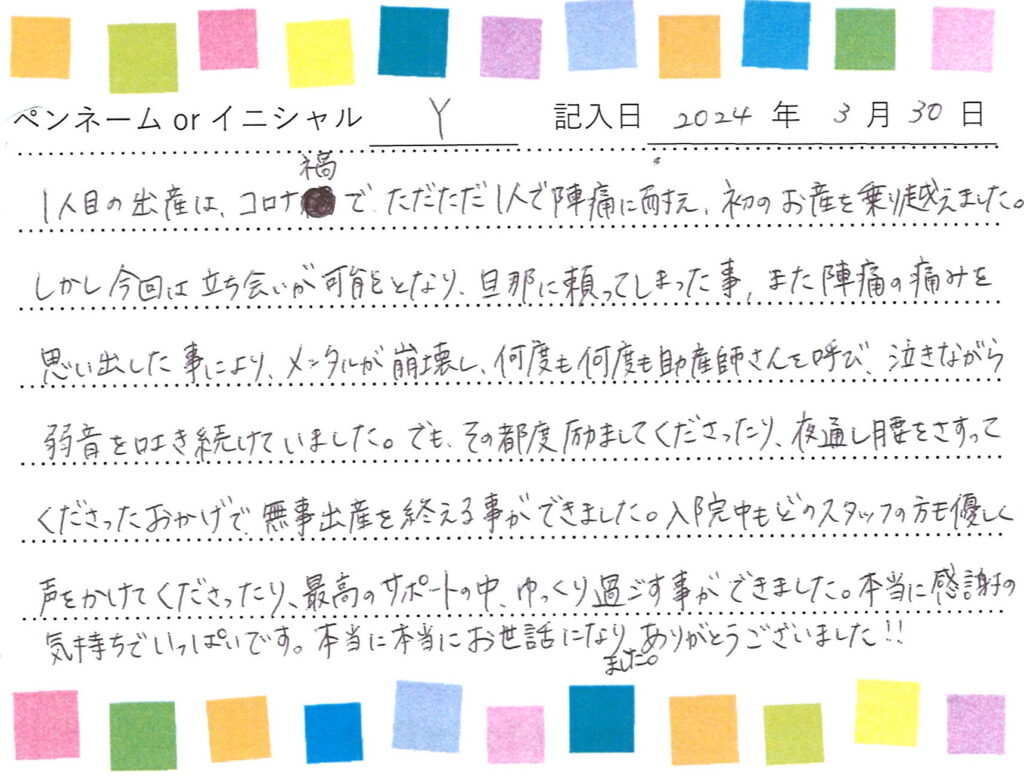 ペンネーム or イニシャル Y 記入日 2024 年 3 月 30 日
1人目の出産は、コロナ禍で、ただただ1人で陣痛に耐え、初のお産を乗り越えました。
しかし今回は立ち会いが可能となり、旦那に頼ってしまった事、また陣痛の痛みを
思い出した事により、メンタルが崩壊し、何度も何度も助産師さんを呼び、泣きながら
弱音を吐き続けていました。でも、その都度励ましてくださったり、夜通し腰をさすって
くださったおかげで、無事出産を終える事ができました。入院中もどのスタッフの方も優しく
声をかけてくださったり、最高のサポートの中、ゆっくり過ごす事ができました。本当に感謝の
気持ちでいっぱいです。本当に本当にお世話になりました。ありがとうございました!!